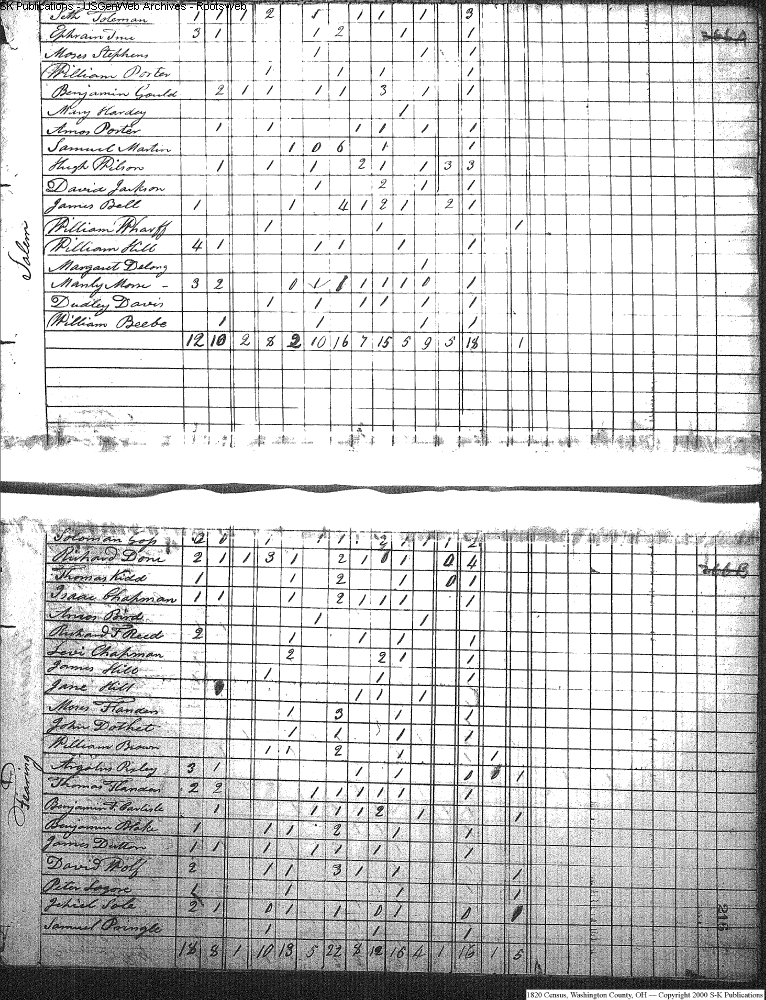 SK Publications - USGenWeb Archives - RootsWeb
Seth Soloman 1 1 1 2 5 1 1 1 3
3 1 1 2 1 1
Moses Stephens 1 1 1
William Porter 1 1 1 1
Benjamin Gould 2 1 1 1 1 3 1 1
Mary Hardey 1
Amos Porter 1 1 1 1 1 1
Samuel Martin 1 0 6 1 1
Hugh Wilson 1 1 1 2 1 1 3 3
David Jackson 1 2 1 1
James Bell 1 1 4 1 2 1 2 1
William Wharff 1 1 1
William Hill 4 1 1 1 1 1
Salem
Margaret Delong 1
Manly Morse - 3 2 0 1 1 1 1 0 1
Dudley Davis 1 1 1 1 1 1
William Beebe 1 1 1 1
12 10 2 8 2 10 16 7 15 5 9 5 18 1
366A
Soloman Goss 2 0 1 1 1 1 1 2
Richard Done 2 1 1 3 1 2 1 0 1 0 4
366B
Thomas Kidd 1 1 2 1 0 1
Isaac Chapman 1 1 1 2 1 1 1 1
Amos Bird 1 1
Richard F Reed 2 1 1 1 1
Levi Chapman 2 2 1 1
James Hill 1 1 1
Jane Hill 1 1 1
Moses Flanders 1 3 1 1
John Dothet 1 1 1 1
William Brown 1 1 2 1 1
Fearing
Argalus 3 1 1 1 0 0 1
Thomas Flanders 2 2 1 1 1 1 1 1
Benjamin F. Carlisle 1 1 1 1 2 1 1
Benjamin Blake 1 1 1 2 1 1
James Dutton 1 1 1 1 1 1 1
David Wolf 2 1 1 3 1 1 1
Peter 1 1 1
Jehiel 2 1 0 1 1 0 1 0
Samuel Pringle 1 1 1
18 8 1 10 13 5 22 8 12 16 4 1 16 1 5
216
1820 Census, Washington County, OH — Copyright 2000 S-K Publications